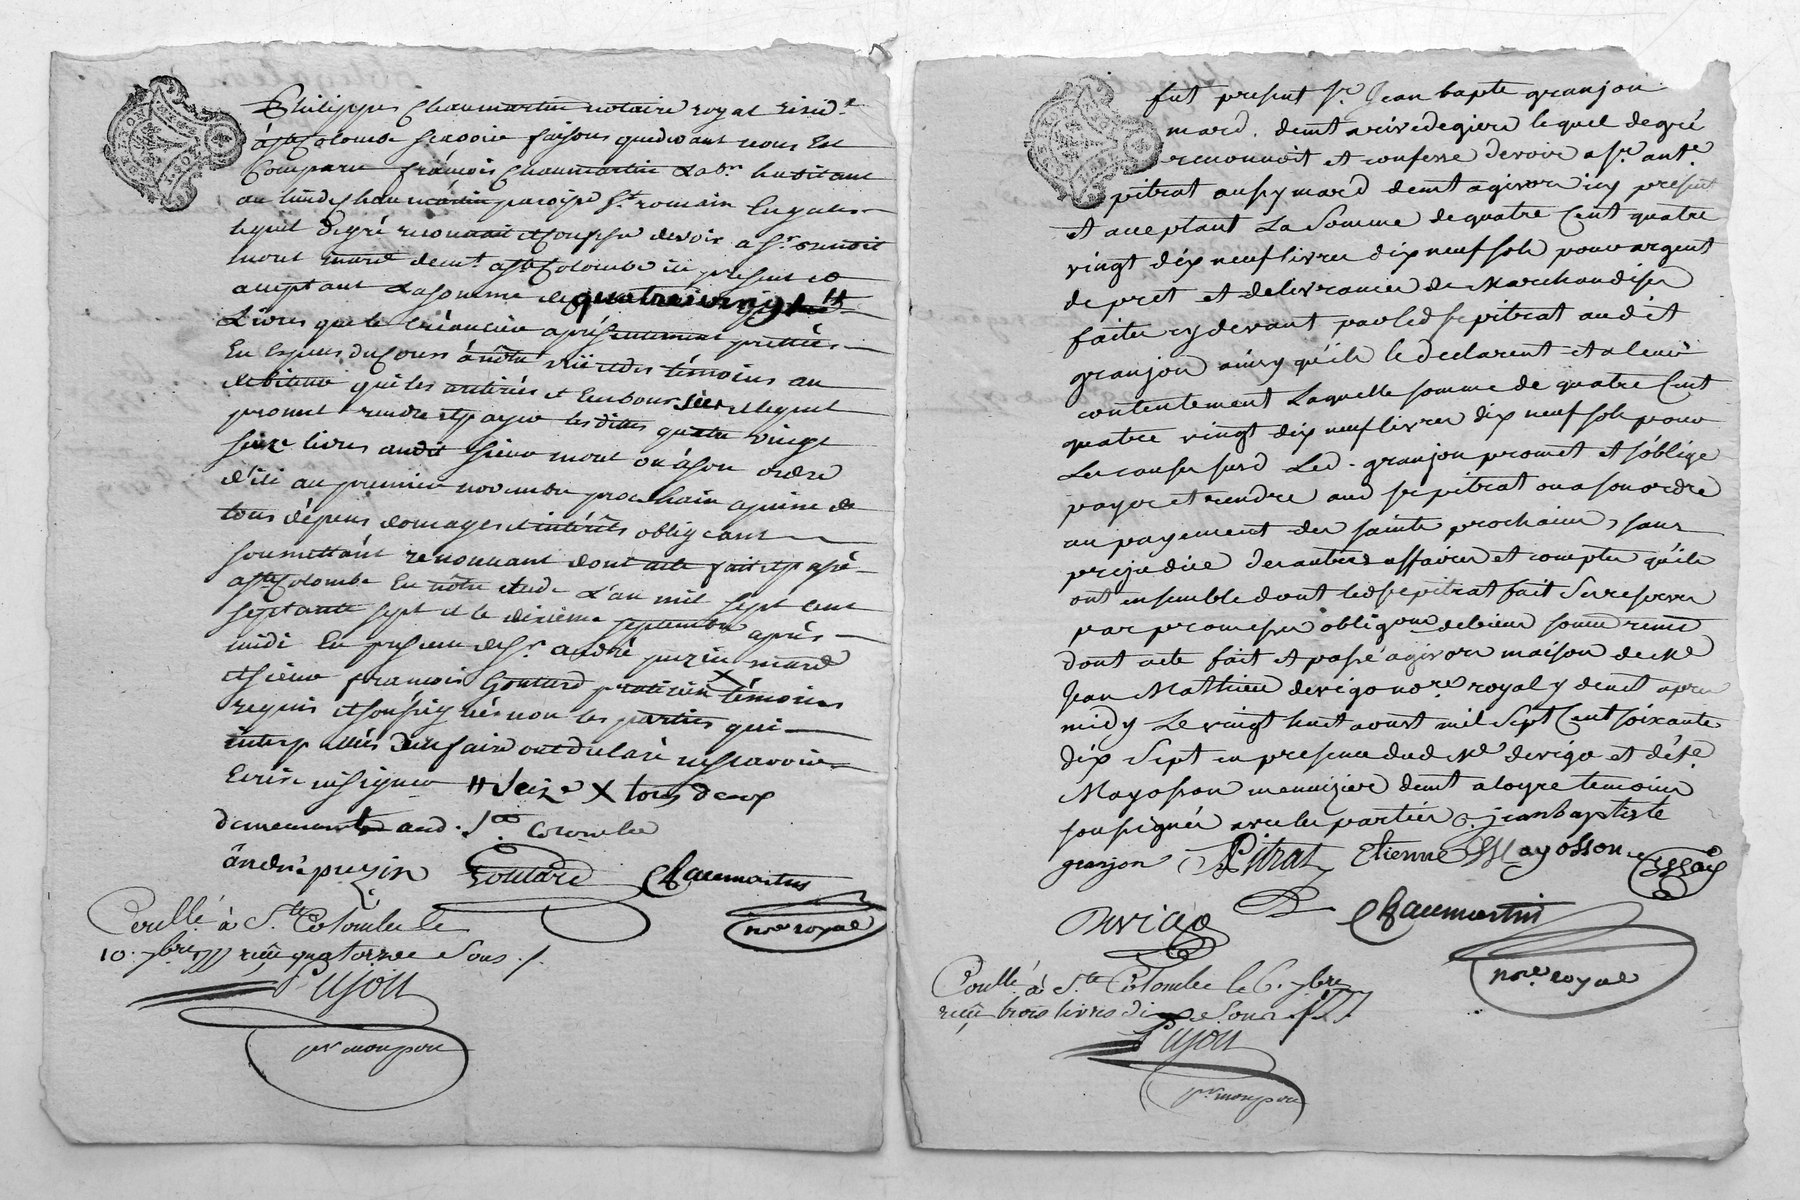 Philippes Chaumartin notaire royal resid.t
à ste Colombe scavoir faisons que devant nous Est
Comparu françois Chaumartin Lab.r habitant
au lieu de chaumartin paroisse St. romain En galles
lequel de gré reconnait et confesse devoir a Sr. benoit
mont mard demt. a ste Colombe ici present et
acceptant La somme de quatre vingt #
Livres que le créancier a présentement prettée
En Especes du Cours à nôtre vüe et des témoins au
debiteur qui les a retirées et Emboursées et lequel
promet rendre et payer les dittes quatre vingt
seize livres audit sieur mont ou à son ordre
d'ici au premier novembre prochain a peine de
tous dépens domages et intérêts obligeant
soumettant renonçant dont acte fait et passé
a ste Colombe En nôtre étude L'an mil sept cent
septante sept et le dixième septembre après
midi En presence de Sr. andré puzin mard
et sieur francois Goutard praticien X témoins
requis et soussignés non les parties qui
interpellées de le faire ont declaré ne scavoir
Ecrire ni signer # seize X tous deux
demeurants aud. Ste Colombe
andré puzin Goutard Chaumartin
nore royal
Conllé à Ste Colombe le
10. 7bre 1777 reçu quatorze Sous ./.
Pujon
pr mon pere
fut present Sr. Jean bapte granjon
mard. demt a rive de giere lequel de gré
reconnoit et confesse devoir a Sr. ante.
pitrat aussy mard demt a givors icy present
et acceptant La Somme de quatre Cent quatre
vingt dix neuf livres dix neuf sols pour argent
de pret et delivrance de Marchandises
faites cy devant par led sr pitrat audit
granjon ainsy qu'ils le declarent et a leur
contentement Laquelle somme de quatre Cent
quatre vingt dix neuf livres dix neuf sols pour
Les causes susd Led. granjon promet et s'oblige
payer et rendre aud sr pitrat ou a son ordre
au payement des saints prochains, sans
prejudice des autres affaires et comptes qu'ils
ont ensemble dont led sr pitrat fait Ses reserves
par promesses obligons de biens soum renon
dont acte fait et passé a givors maison de Me
Jean Mathieu devigo nore. royal y demt apres
midy Le vingt huit aoust mil Sept Cent soixante
dix Sept en presence dud Me devigo et d'éte.
Mayosson menuizier demt a loyre temoins
soussignés avec les parties. jean baptiste
granjon Pitrat Etienne Mayosson
Devigo Chaumartin
nore. royal
Conllé à Ste Colombe le 6. 7bre
reçu trois livres dix Sous 1777
Pujon
pr mon pere